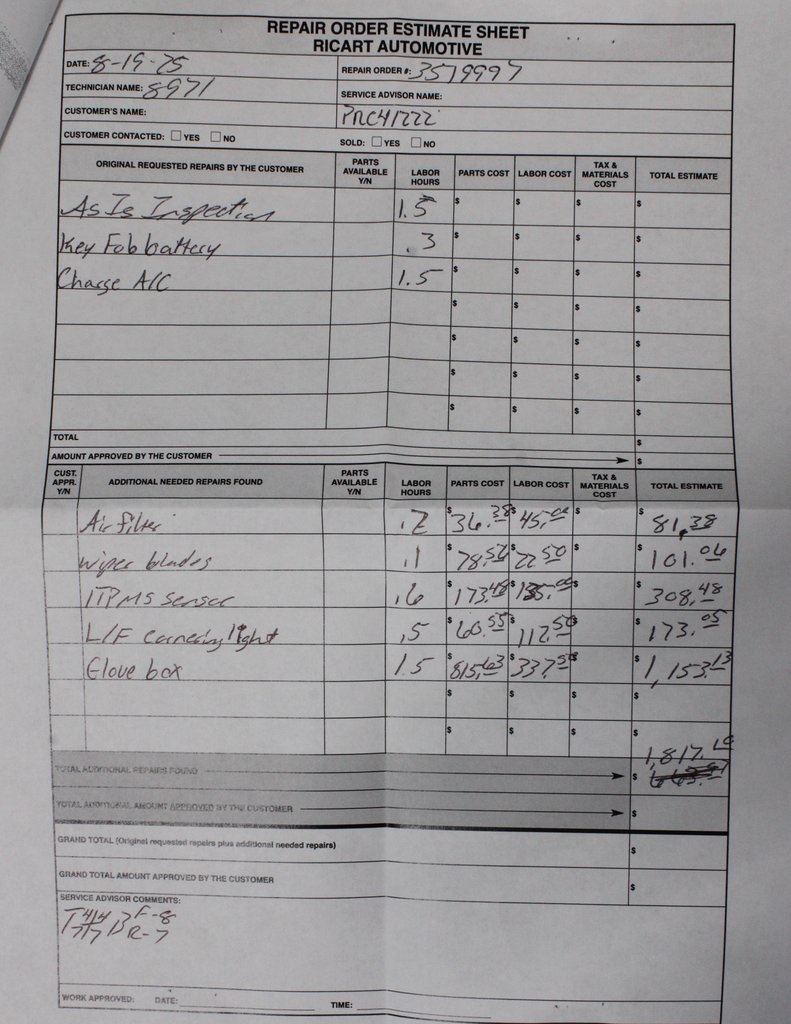 REPAIR ORDER ESTIMATE SHEET
RICART AUTOMOTIVE
DATE: 8-19-25 REPAIR ORDER #: 3519997
TECHNICIAN NAME: 8971 SERVICE ADVISOR NAME:
CUSTOMER'S NAME: PRC41222
CUSTOMER CONTACTED: ☐ YES ☐ NO SOLD: ☐ YES ☐ NO
ORIGINAL REQUESTED REPAIRS BY THE CUSTOMER PARTS AVAILABLE Y/N LABOR HOURS PARTS COST LABOR COST TAX & MATERIALS COST TOTAL ESTIMATE
As Is Inspection 1.5 $ $ $ $
Key Fob battery .3 $ $ $ $
Charge A/C 1.5 $ $ $ $
$ $ $ $
$ $ $ $
$ $ $ $
$ $ $ $
TOTAL $
AMOUNT APPROVED BY THE CUSTOMER $
CUST. APPR. Y/N ADDITIONAL NEEDED REPAIRS FOUND PARTS AVAILABLE Y/N LABOR HOURS PARTS COST LABOR COST TAX & MATERIALS COST TOTAL ESTIMATE
Air filter .2 $36.38 $45.00 $ $81.38
wiper blades .1 $78.56 $22.50 $ $101.06
1TPMS sensor .6 $173.48 $135.00 $ $308.48
L/F cornering light .5 $60.55 $112.50 $ $173.05
Glove box 1.5 $815.63 $337.50 $ $1,153.13
$ $ $ $
$ $ $ $
TOTAL ADDITIONAL REPAIRS FOUND $ 1,817.10
TOTAL ADDITIONAL AMOUNT APPROVED BY THE CUSTOMER $
GRAND TOTAL (Original requested repairs plus additional needed repairs) $
GRAND TOTAL AMOUNT APPROVED BY THE CUSTOMER $
SERVICE ADVISOR COMMENTS:
T 4/4 B F-8
7/7 R-7
WORK APPROVED: DATE: TIME: